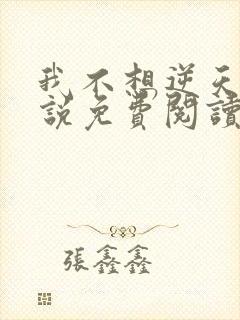 我不想逆天
說免費閱讀
張鑫鑫